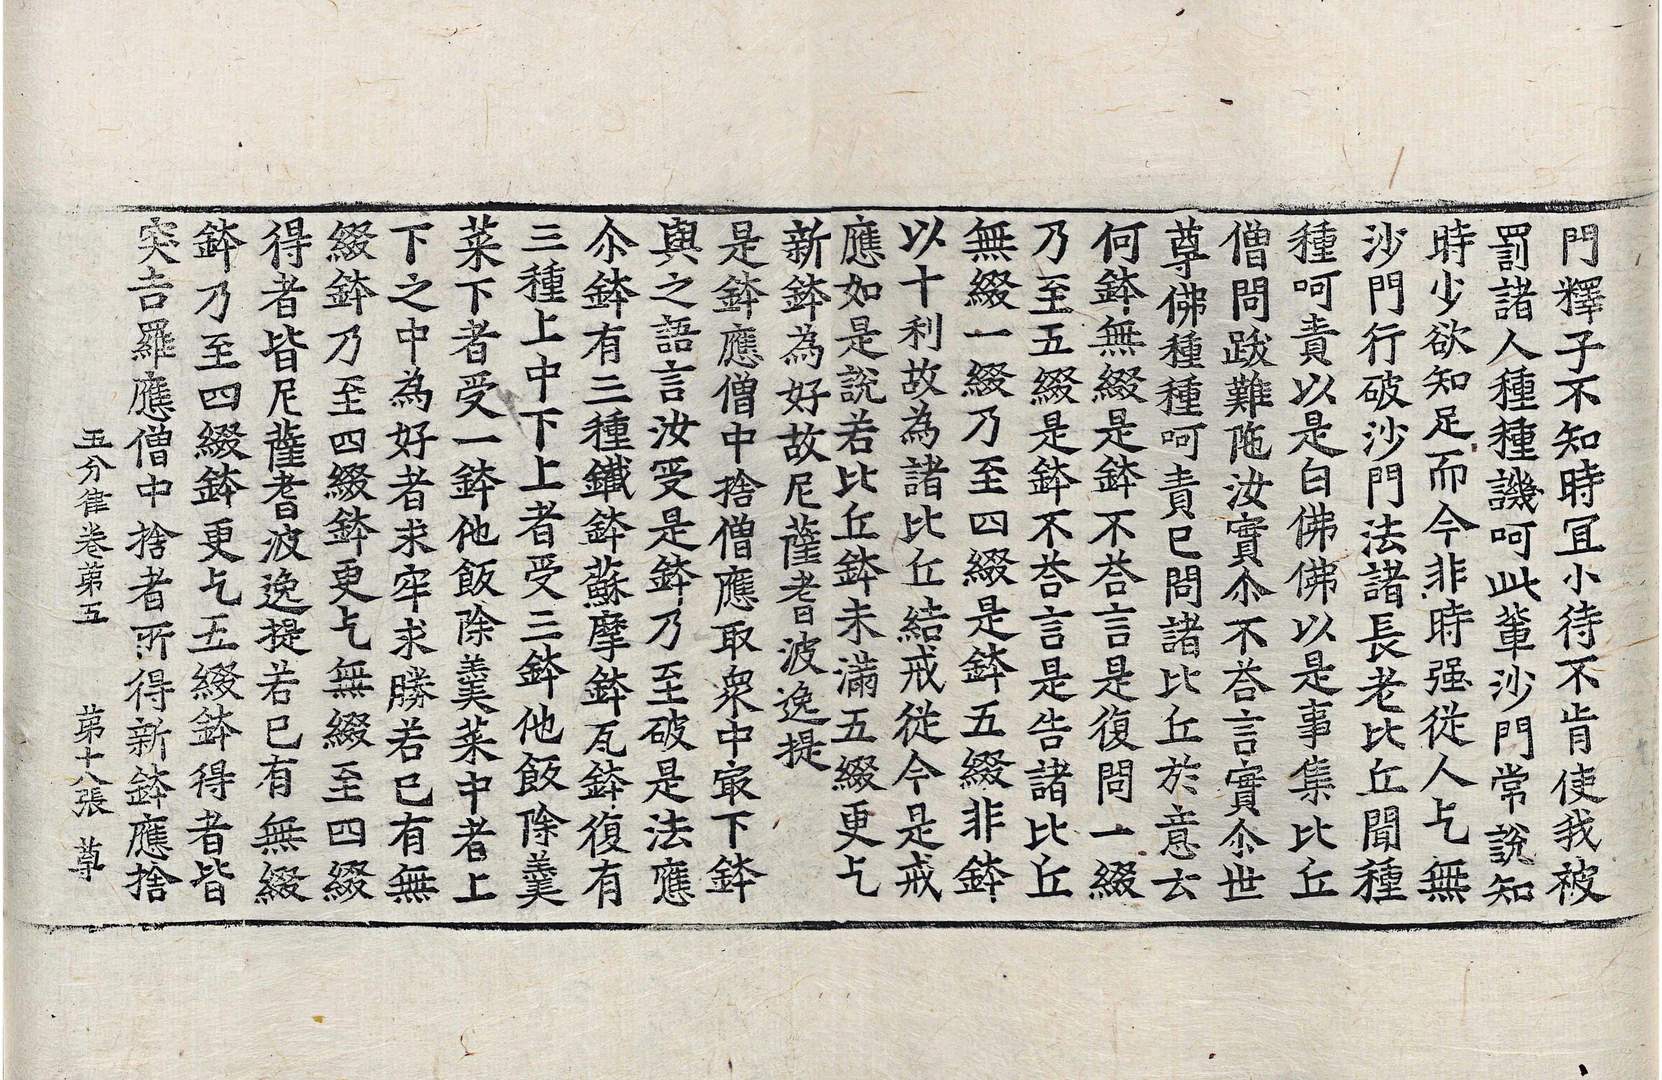 門釋子不知時冝小待不肯使我被
罰諸人種種譏呵此輩沙門常說知
時少欲知足而今非時强從人乞無
沙門行破沙門法諸長老比丘聞種
種呵責以是白佛佛以是事集比丘
僧問跋難陁汝實尒不荅言實尒世
尊佛種種呵責已問諸比丘於意云
何鉢無綴是鉢不荅言是復問一綴
乃至五綴是鉢不荅言是告諸比丘
無綴一綴乃至四綴是鉢五綴非鉢
以十利故為諸比丘結戒從今是戒
應如是說若比丘鉢未滿五綴更乞
新鉢為好故尼薩耆波逸提
是鉢應僧中捨僧應取衆中㝡下鉢
與之語言汝受是鉢乃至破是法應
尒鉢有三種鐵鉢蘇摩鉢瓦鉢復有
三種上中下上者受三鉢他飯除羹
菜下者受一鉢他飯除羹菜中者上
下之中為好者求牢求勝若已有無
綴鉢乃至四綴鉢更乞無綴至四綴
得者皆尼薩耆波逸提若已有無綴
鉢乃至四綴鉢更乞五綴鉢得者皆
突吉羅應僧中捨者所得新鉢應捨
五分律卷第五　第十八張　尊